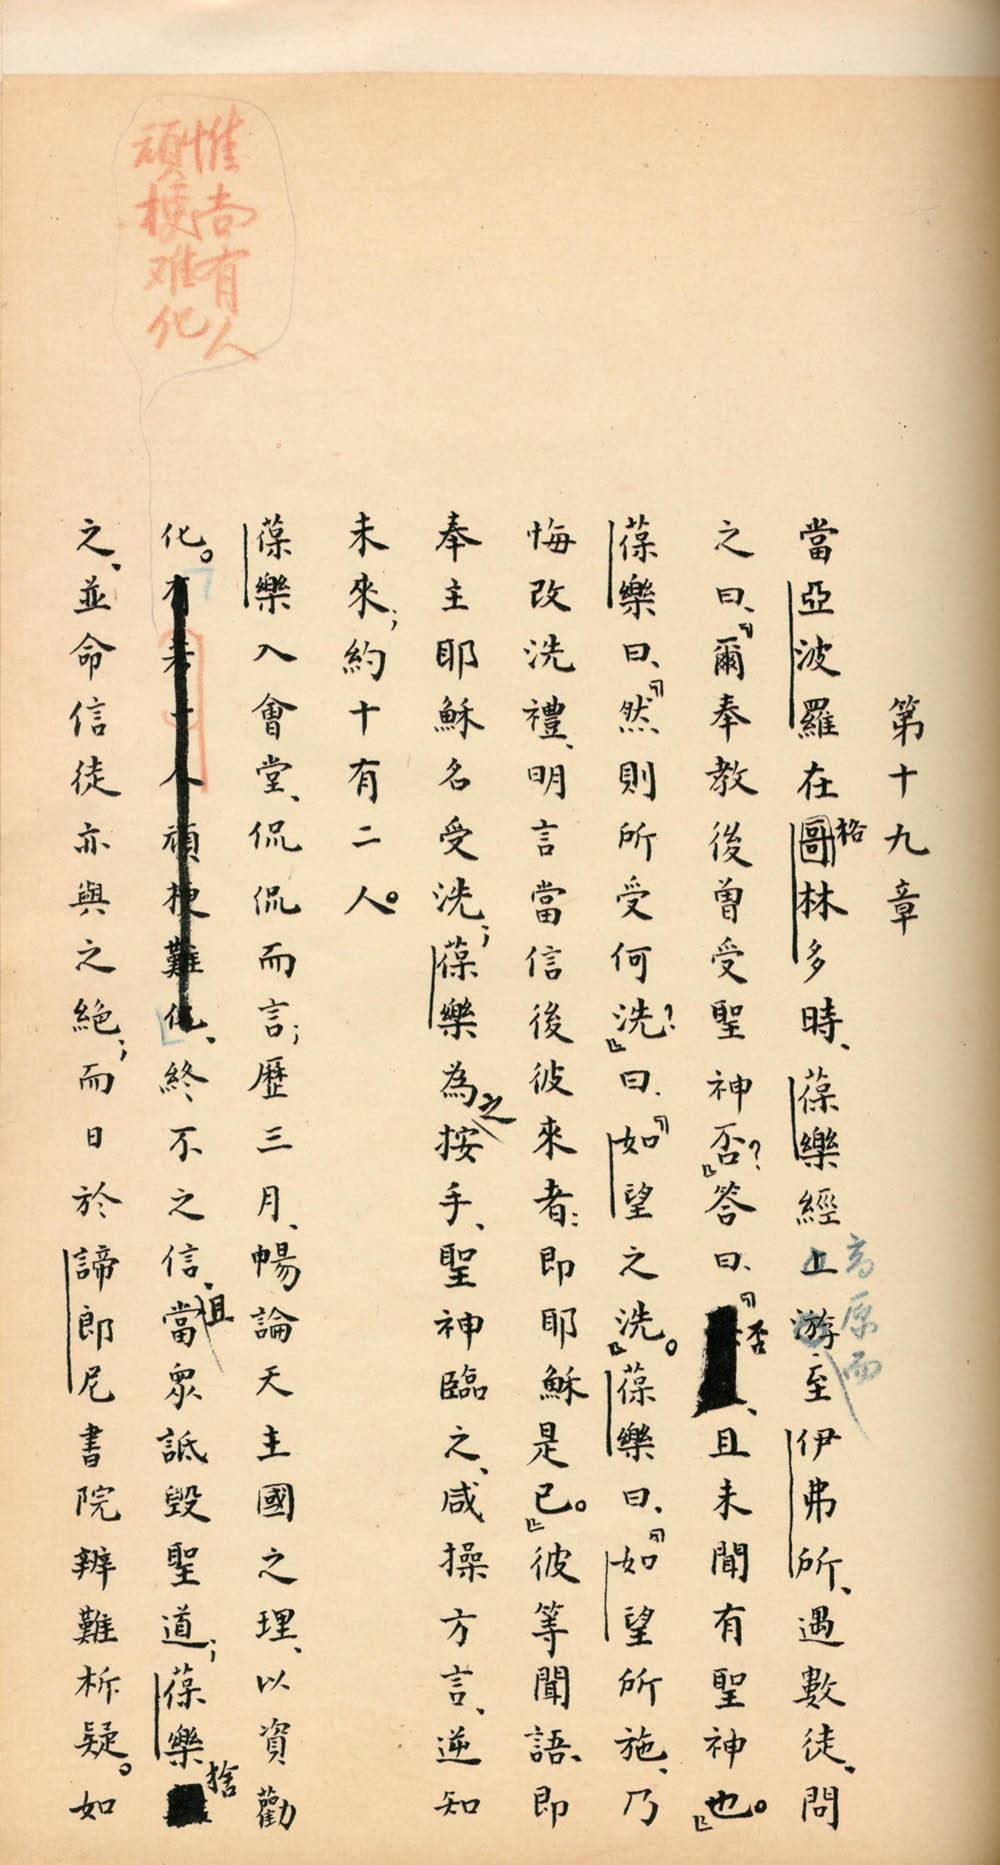 第十九章
當亞波羅在哥林多時、葆樂經上游至伊弗所、遇數徒、問
格
高原而
之曰、『爾奉教後曾受聖神否？』答曰、『、且未聞有聖神也。』
否
葆樂曰、『然則所受何洗？』曰、『如望之洗。』葆樂曰、『如望所施、乃
悔改洗禮、明言當信後彼來者：即耶穌是已。』彼等聞語、即
奉主耶穌名受洗；葆樂為按手、聖神臨之、咸操方言、逆知
之
未來；約十有二人。
葆樂入會堂、侃侃而言；歷三月、暢論天主國之理、以資勸
化。有者頑梗難化、終不之信、當眾詆毀聖道；葆樂
且
捨
惟尚有人
頑梗难化
之、並命信徒亦與之絕；而日於諦郎尼書院辨難析疑。如